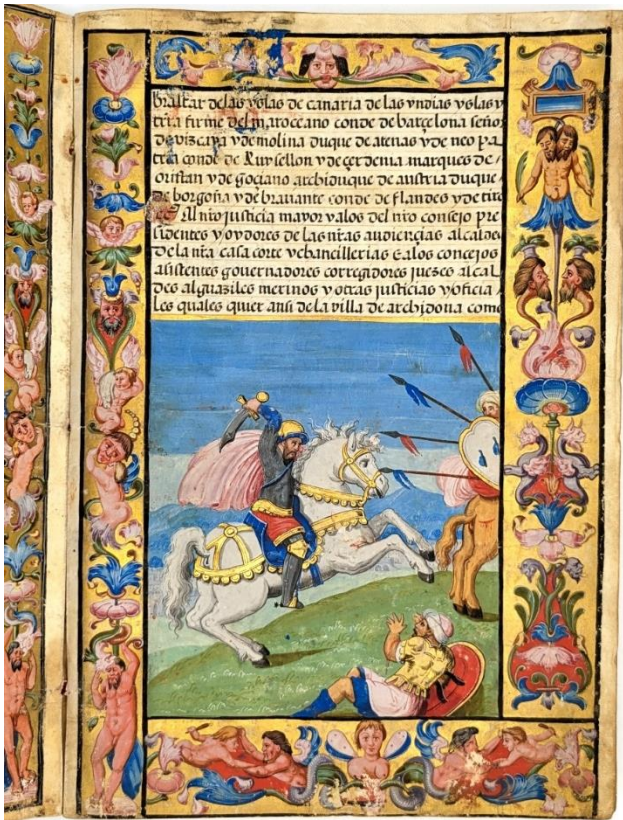 braltar de las yslas de canaria de las yndias yslas y
trra firme del mar oceano conde de barçelona señor
de vizcaya y de molina duque de atenas y de neo pa
tria conde de Ruysellon y de çerdenia marques de
oristan y de goçiano archiduque de austria duque
de borgoña y de brauante conde de flandes y de tirol
Al nro justicia mayor y a los del nro consejo pre
sidentes y oydores de las nras audiençias alcaldes
de la nra casa corte y chancillerias e a los concejos
asistentes governadores corregidores jueses alcal
des alguasiles merinos y otras justicias y oficia
les quales quier ansi de la villa de archidona como